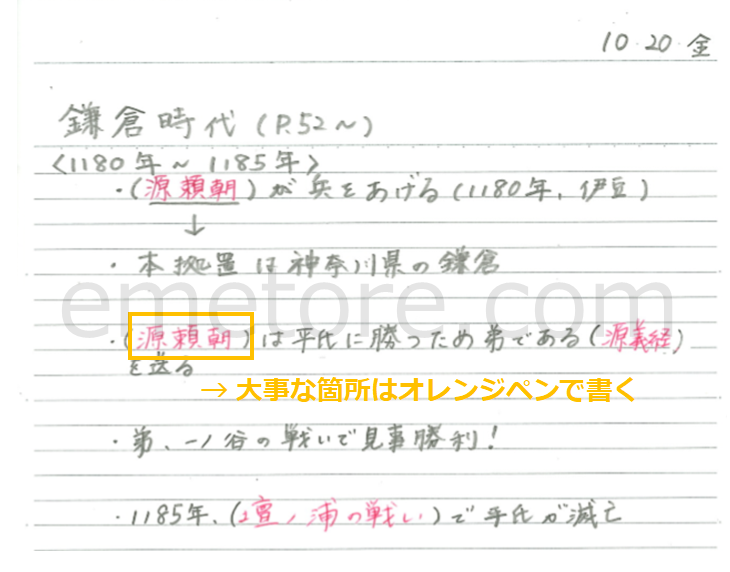 10.20.金
鎌倉時代(P.52～)
<1180年～1185年>
・(源頼朝)が兵をあげる(1180年、伊豆)
↓
・本拠置は神奈川県の鎌倉
emetore.com
・(源頼朝)は平氏に勝つため弟である(源義経)
を送る
→ 大事な箇所はオレンジペンで書く
・弟、一ノ谷の戦いで見事勝利！
・1185年、(壇ノ浦の戦い)で平氏が滅亡